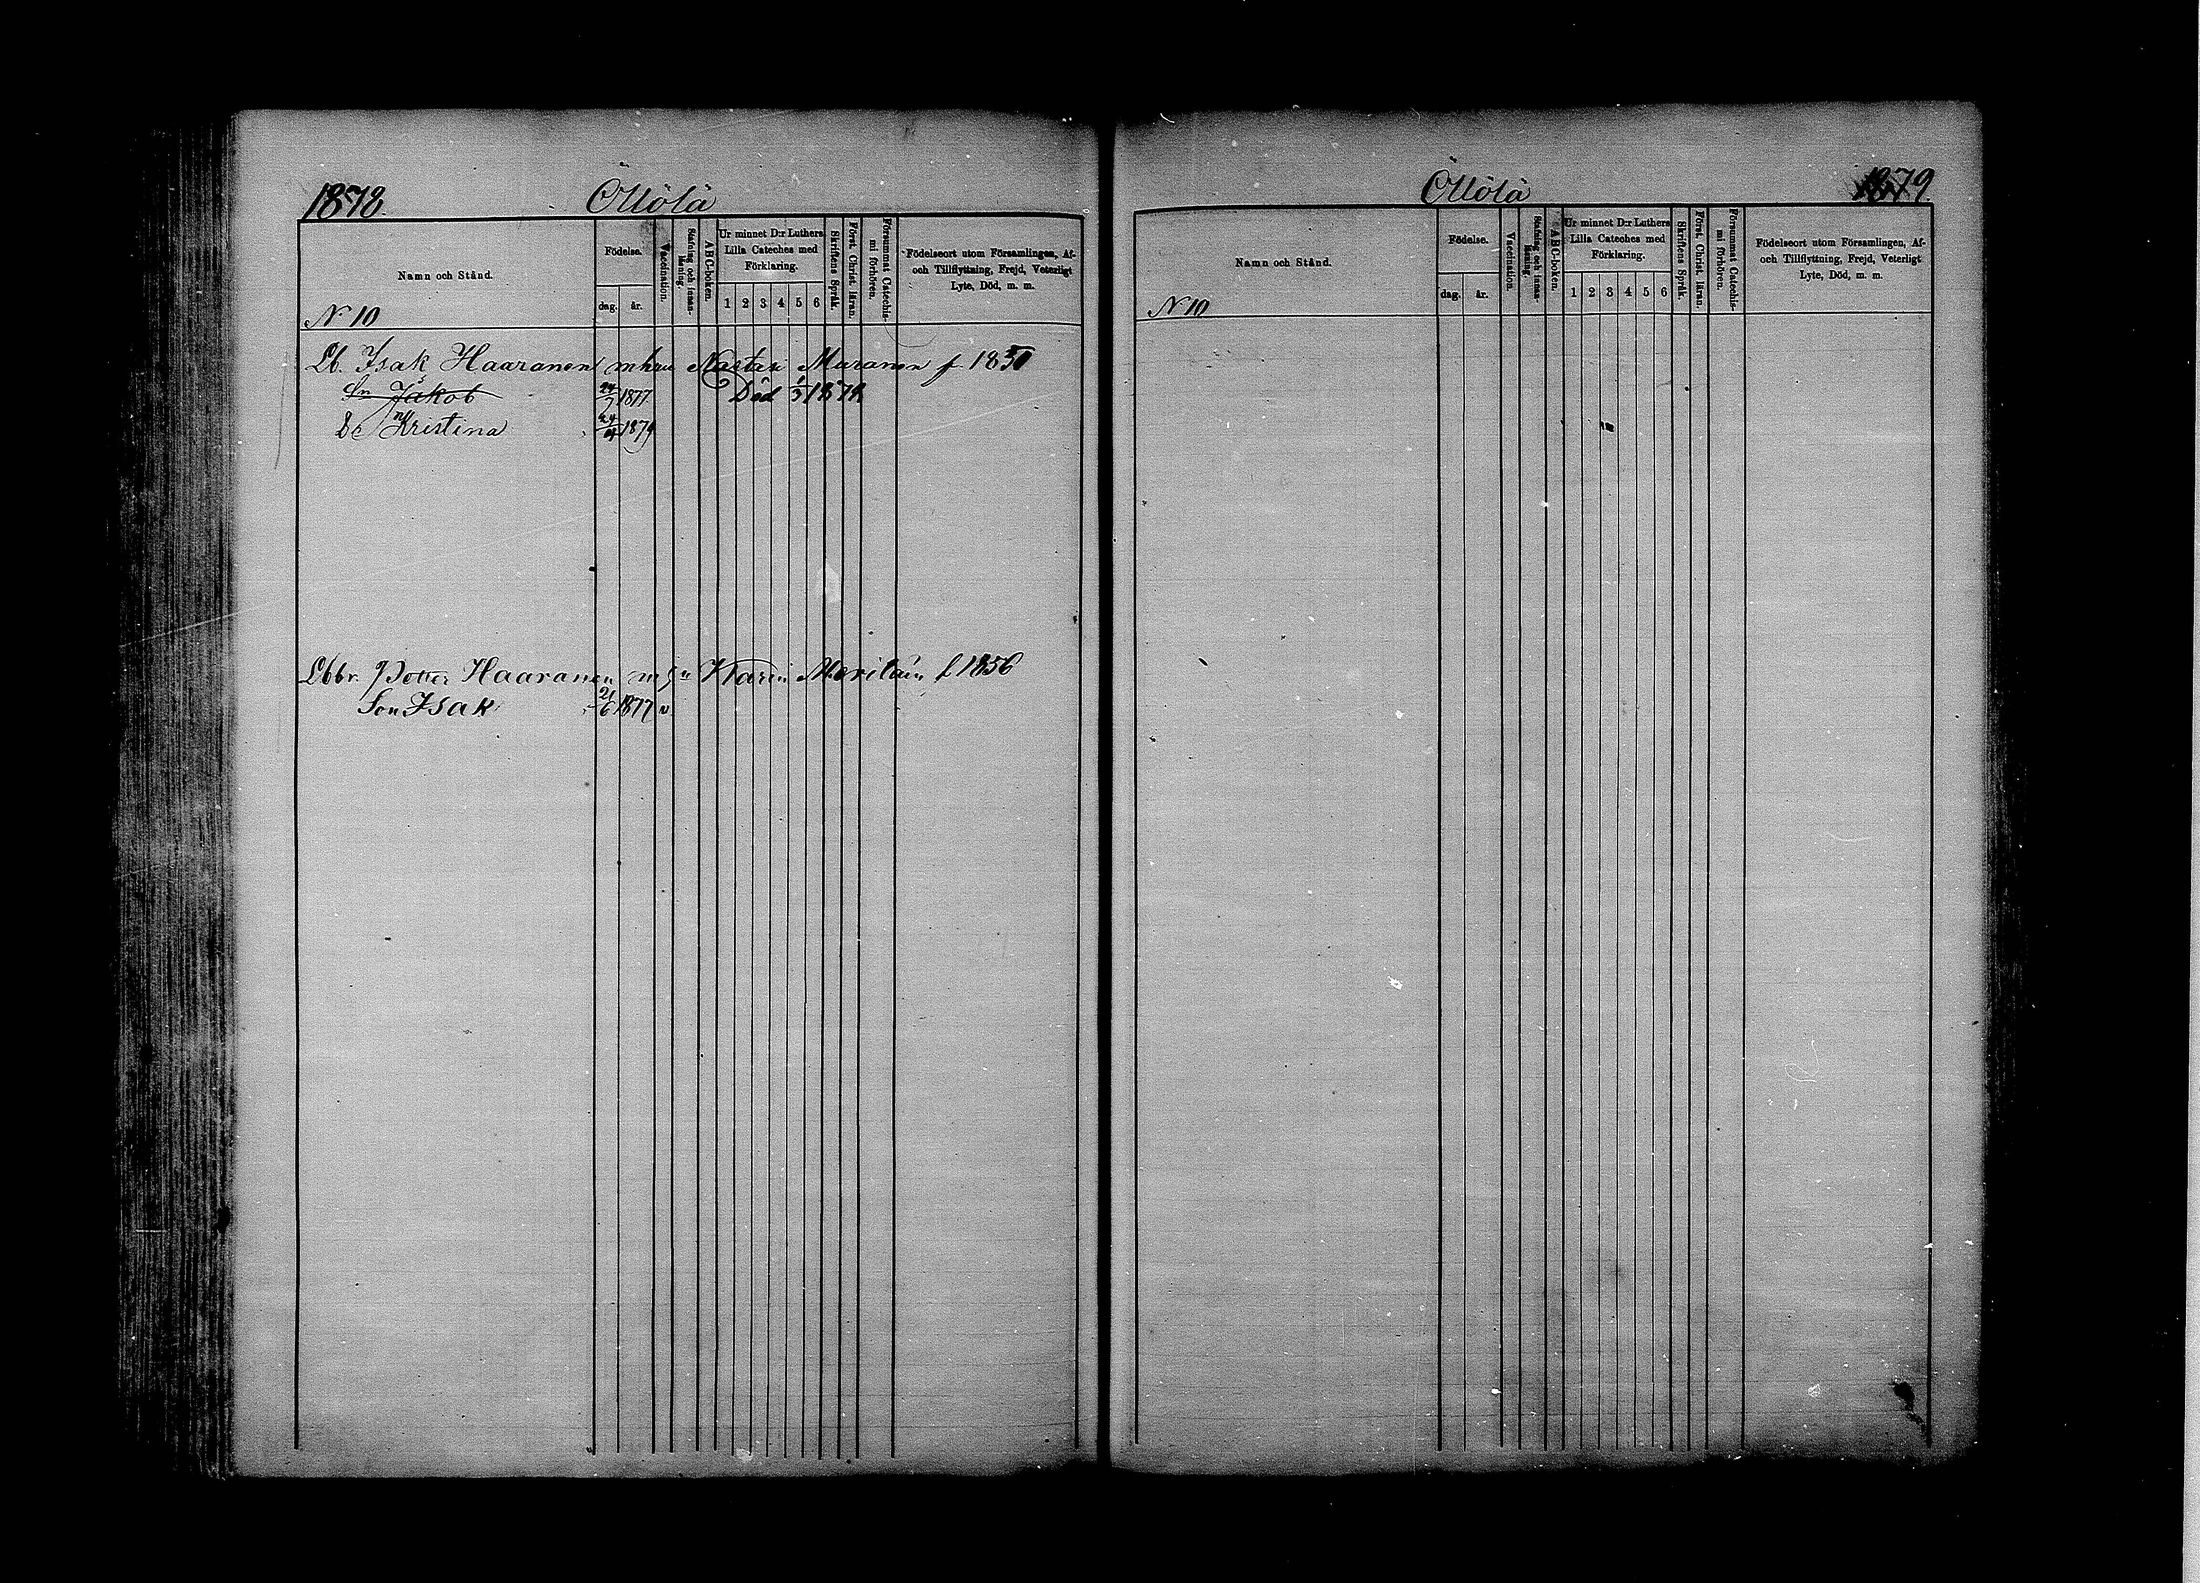 1878. Ollölä
Namn och Stånd. Födelse. dag. år. Vaccination. Stafning och innan-läsning. ABC-boken. Ur minnet D:r Luthers Lilla Cateches med Förklaring. 1 2 3 4 5 6 Skriftens Språk. Först. Christ. läran. Försummat Catechis-mi förhören. Födelseort utom Församlingen, Af-och Tillflyttning, Frejd, Veterligt Lyte, Död, m. m.
N 10
Lb. Isak Haaranen m hu Muranen f 1850
Sn Jakob 24/7 1877 Död 1/3 1878
Kristina 1879
Lbbr. Petter Haaranen Karin f 1856
Son Isak 21/6 1877 v
Ollölä 1879
Namn och Stånd. Födelse. dag. år. Vaccination. Stafning och innan-läsning. ABC-boken. Ur minnet D:r Luthers Lilla Cateches med Förklaring. 1 2 3 4 5 6 Skriftens Språk. Först. Christ. läran. Försummat Catechis-mi förhören. Födelseort utom Församlingen, Af-och Tillflyttning, Frejd, Veterligt Lyte, Död, m. m.
N 10